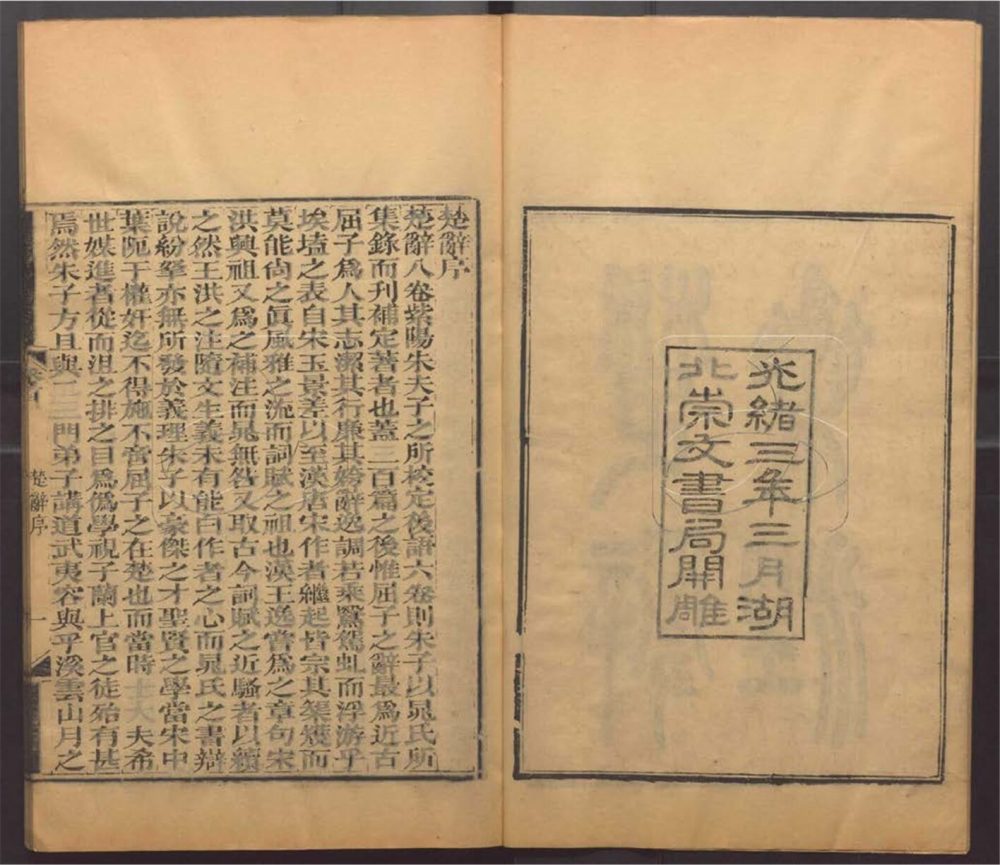 光緒三年三月湖
北崇文書局開雕
楚辭序
楚辭八卷紫陽朱夫子之所校定後語六卷則朱子以晁氏所
集錄而刊補定著者也蓋三百篇之後惟屈子之辭最爲近古
屈子爲人其志潔其行廉其姱辭逸調若乘鷖駕虬而浮游乎
埃壒之表自宋玉景差以至漢唐宋作者繼起皆宗其榘矱而
莫能尙之眞風雅之流而詞賦之祖也漢王逸嘗爲之章句宋
洪興祖又爲之補注而晁無咎又取古今詞賦之近騷者以續
之然王洪之注隨文生義未有能白作者之心而晁氏之書辯
說紛拏亦無所發於義理朱子以豪傑之才聖賢之學當宋中
葉阨于權奸迄不得施不啻屈子之在楚也而當時士大夫希
世媒進者從而沮之排之目爲僞學視子蘭上官之徒殆有甚
焉然朱子方且與二三門弟子講道武夷容與乎溪雲山月之
楚辭序
一